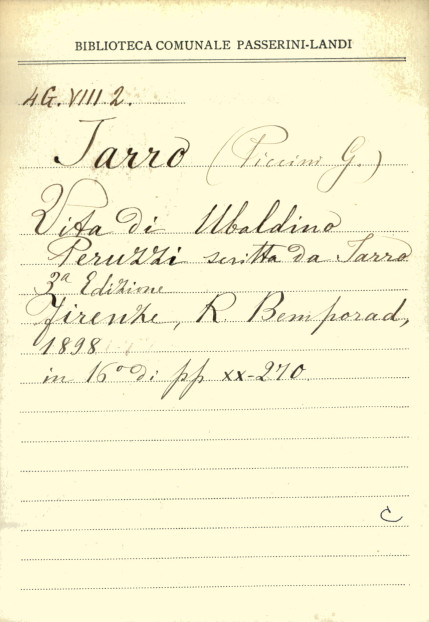 BIBLIOTECA COMUNALE PASSERINI-LANDI
4G. VIII 2.
Jarro (Piccini G.)
Vita di Ubaldino
Peruzzi scritta da Jarro
3ª Edizione
Firenze, R. Bemporad,
1898
in 16° di pp xx-270.
C